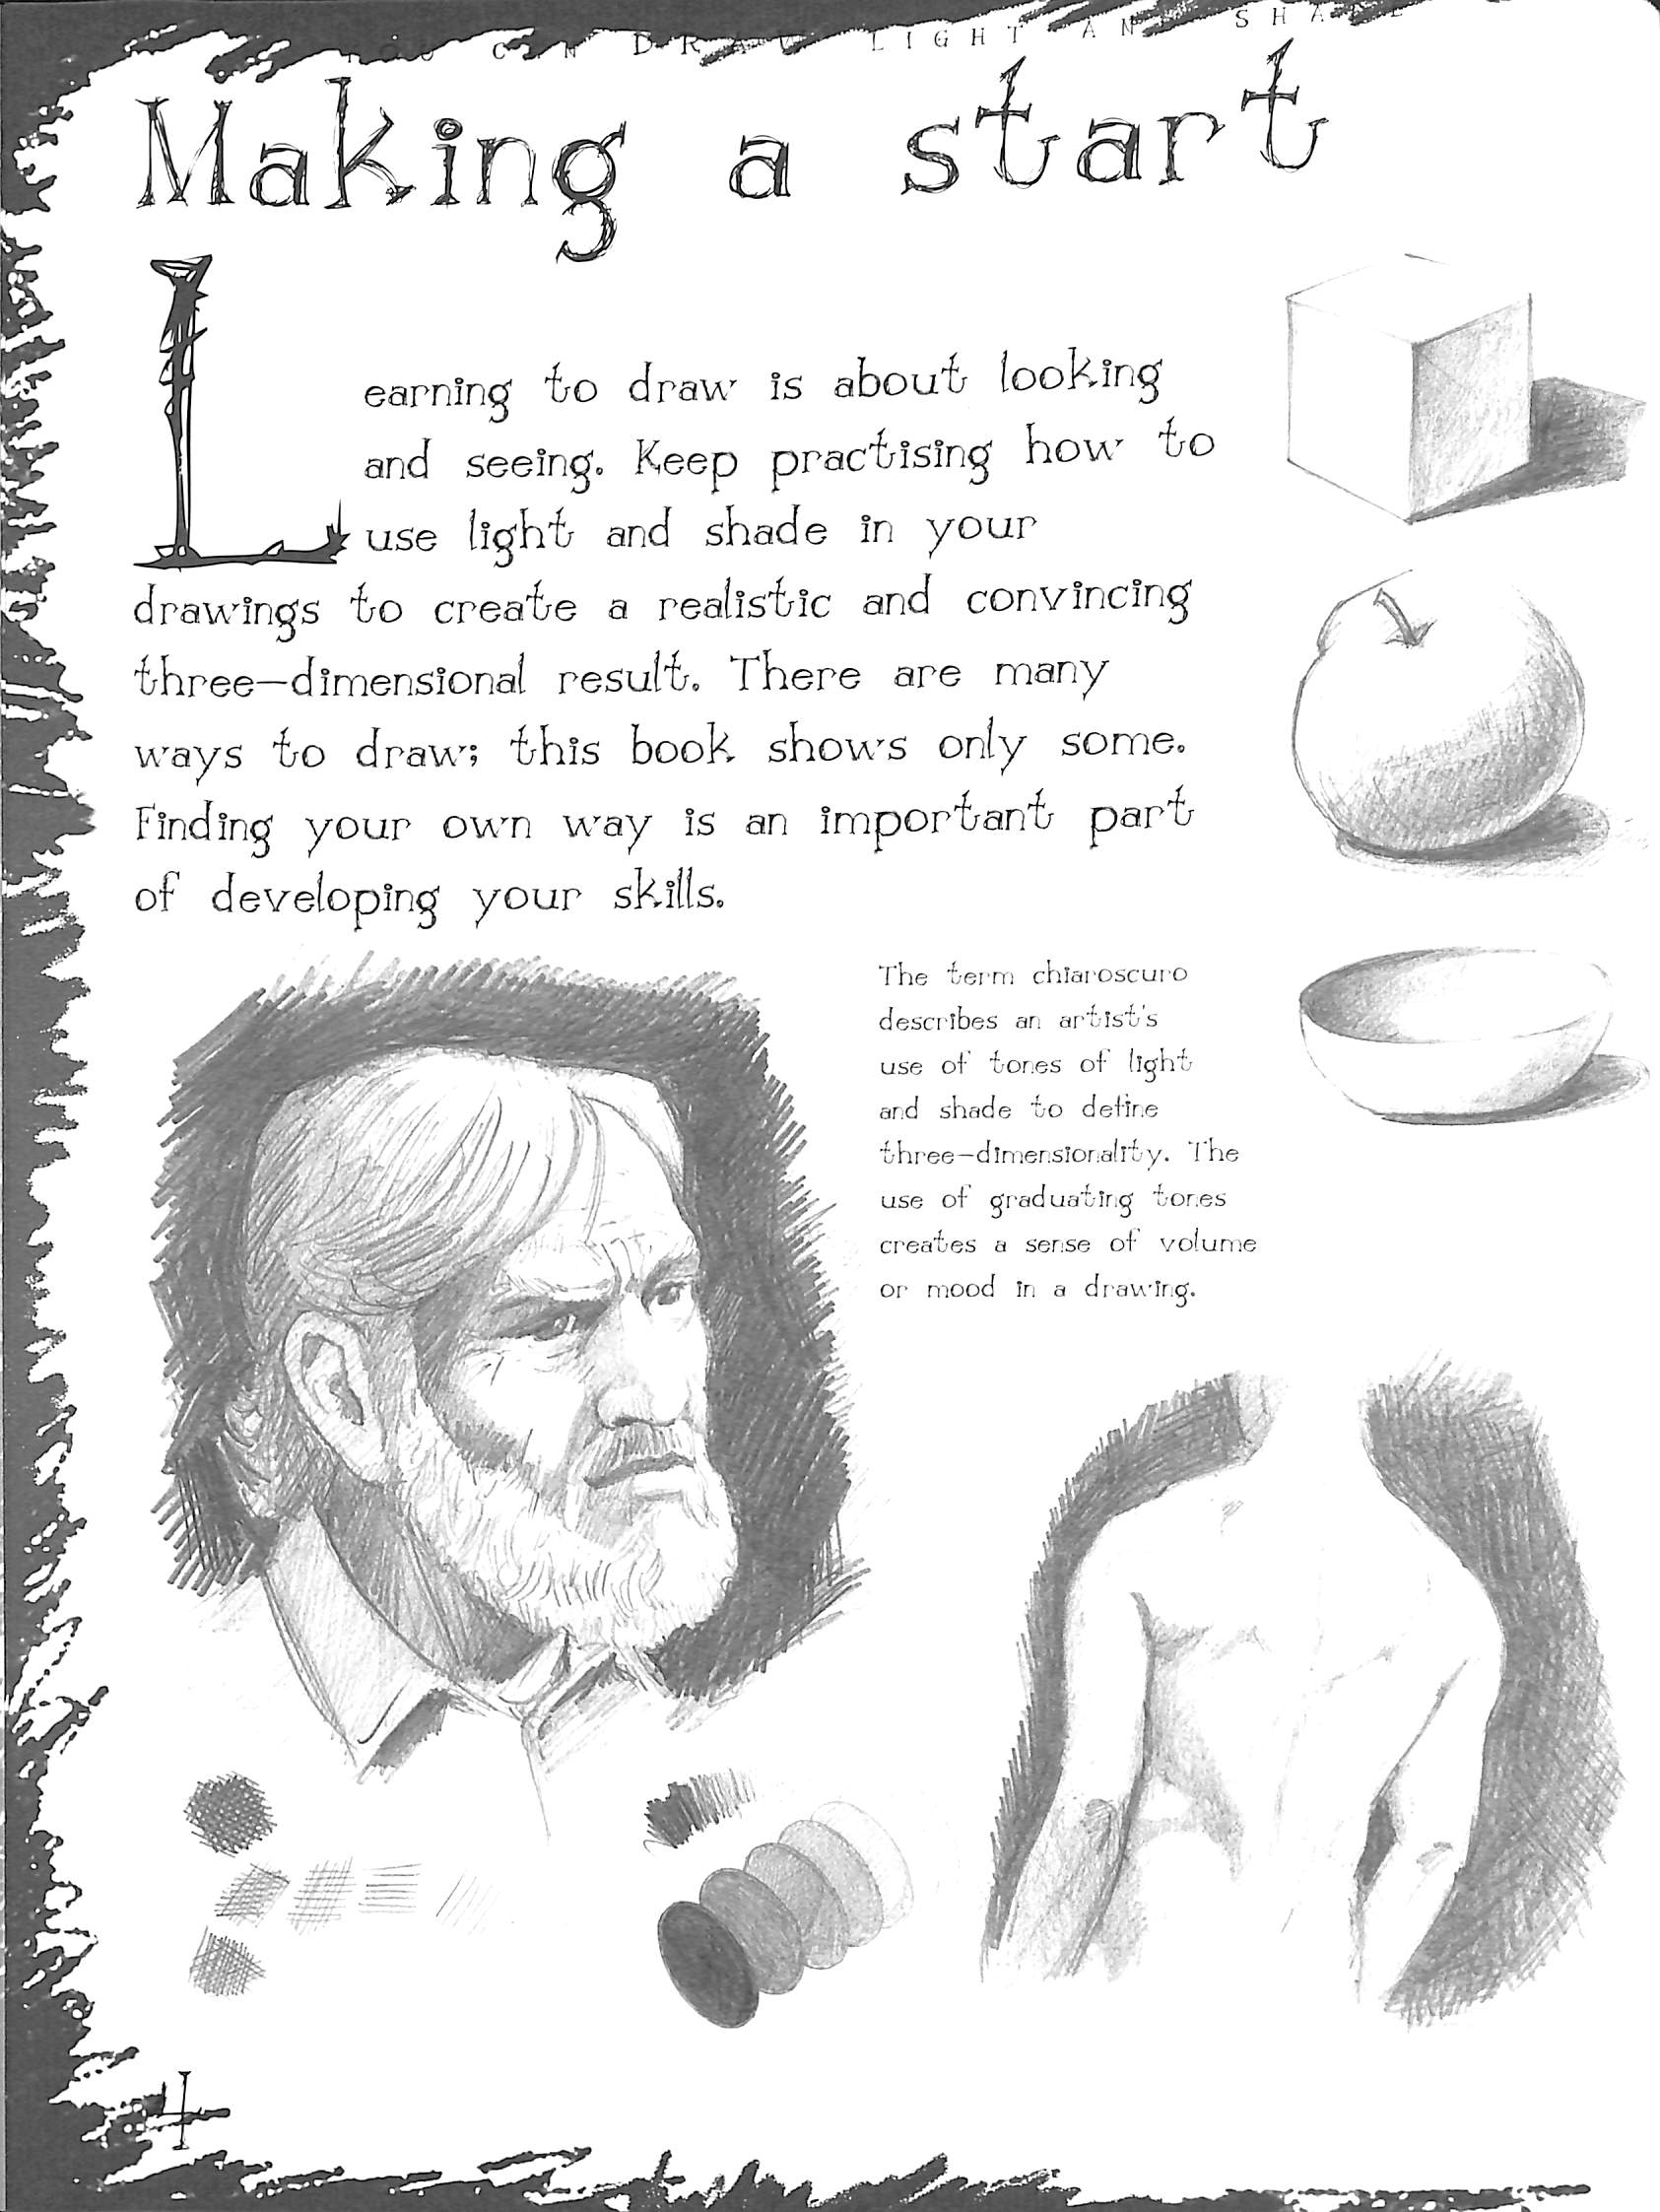 YOU CAN DRAW LIGHT AND SHADE
Making a start
Learning to draw is about looking
and seeing. Keep practising how to
use light and shade in your
drawings to create a realistic and convincing
three-dimensional result. There are many
ways to draw; this book shows only some.
Finding your own way is an important part
of developing your skills.
The term chiaroscuro
describes an artist's
use of tones of light
and shade to define
three-dimensionality. The
use of graduating tones
creates a sense of volume
or mood in a drawing.
4